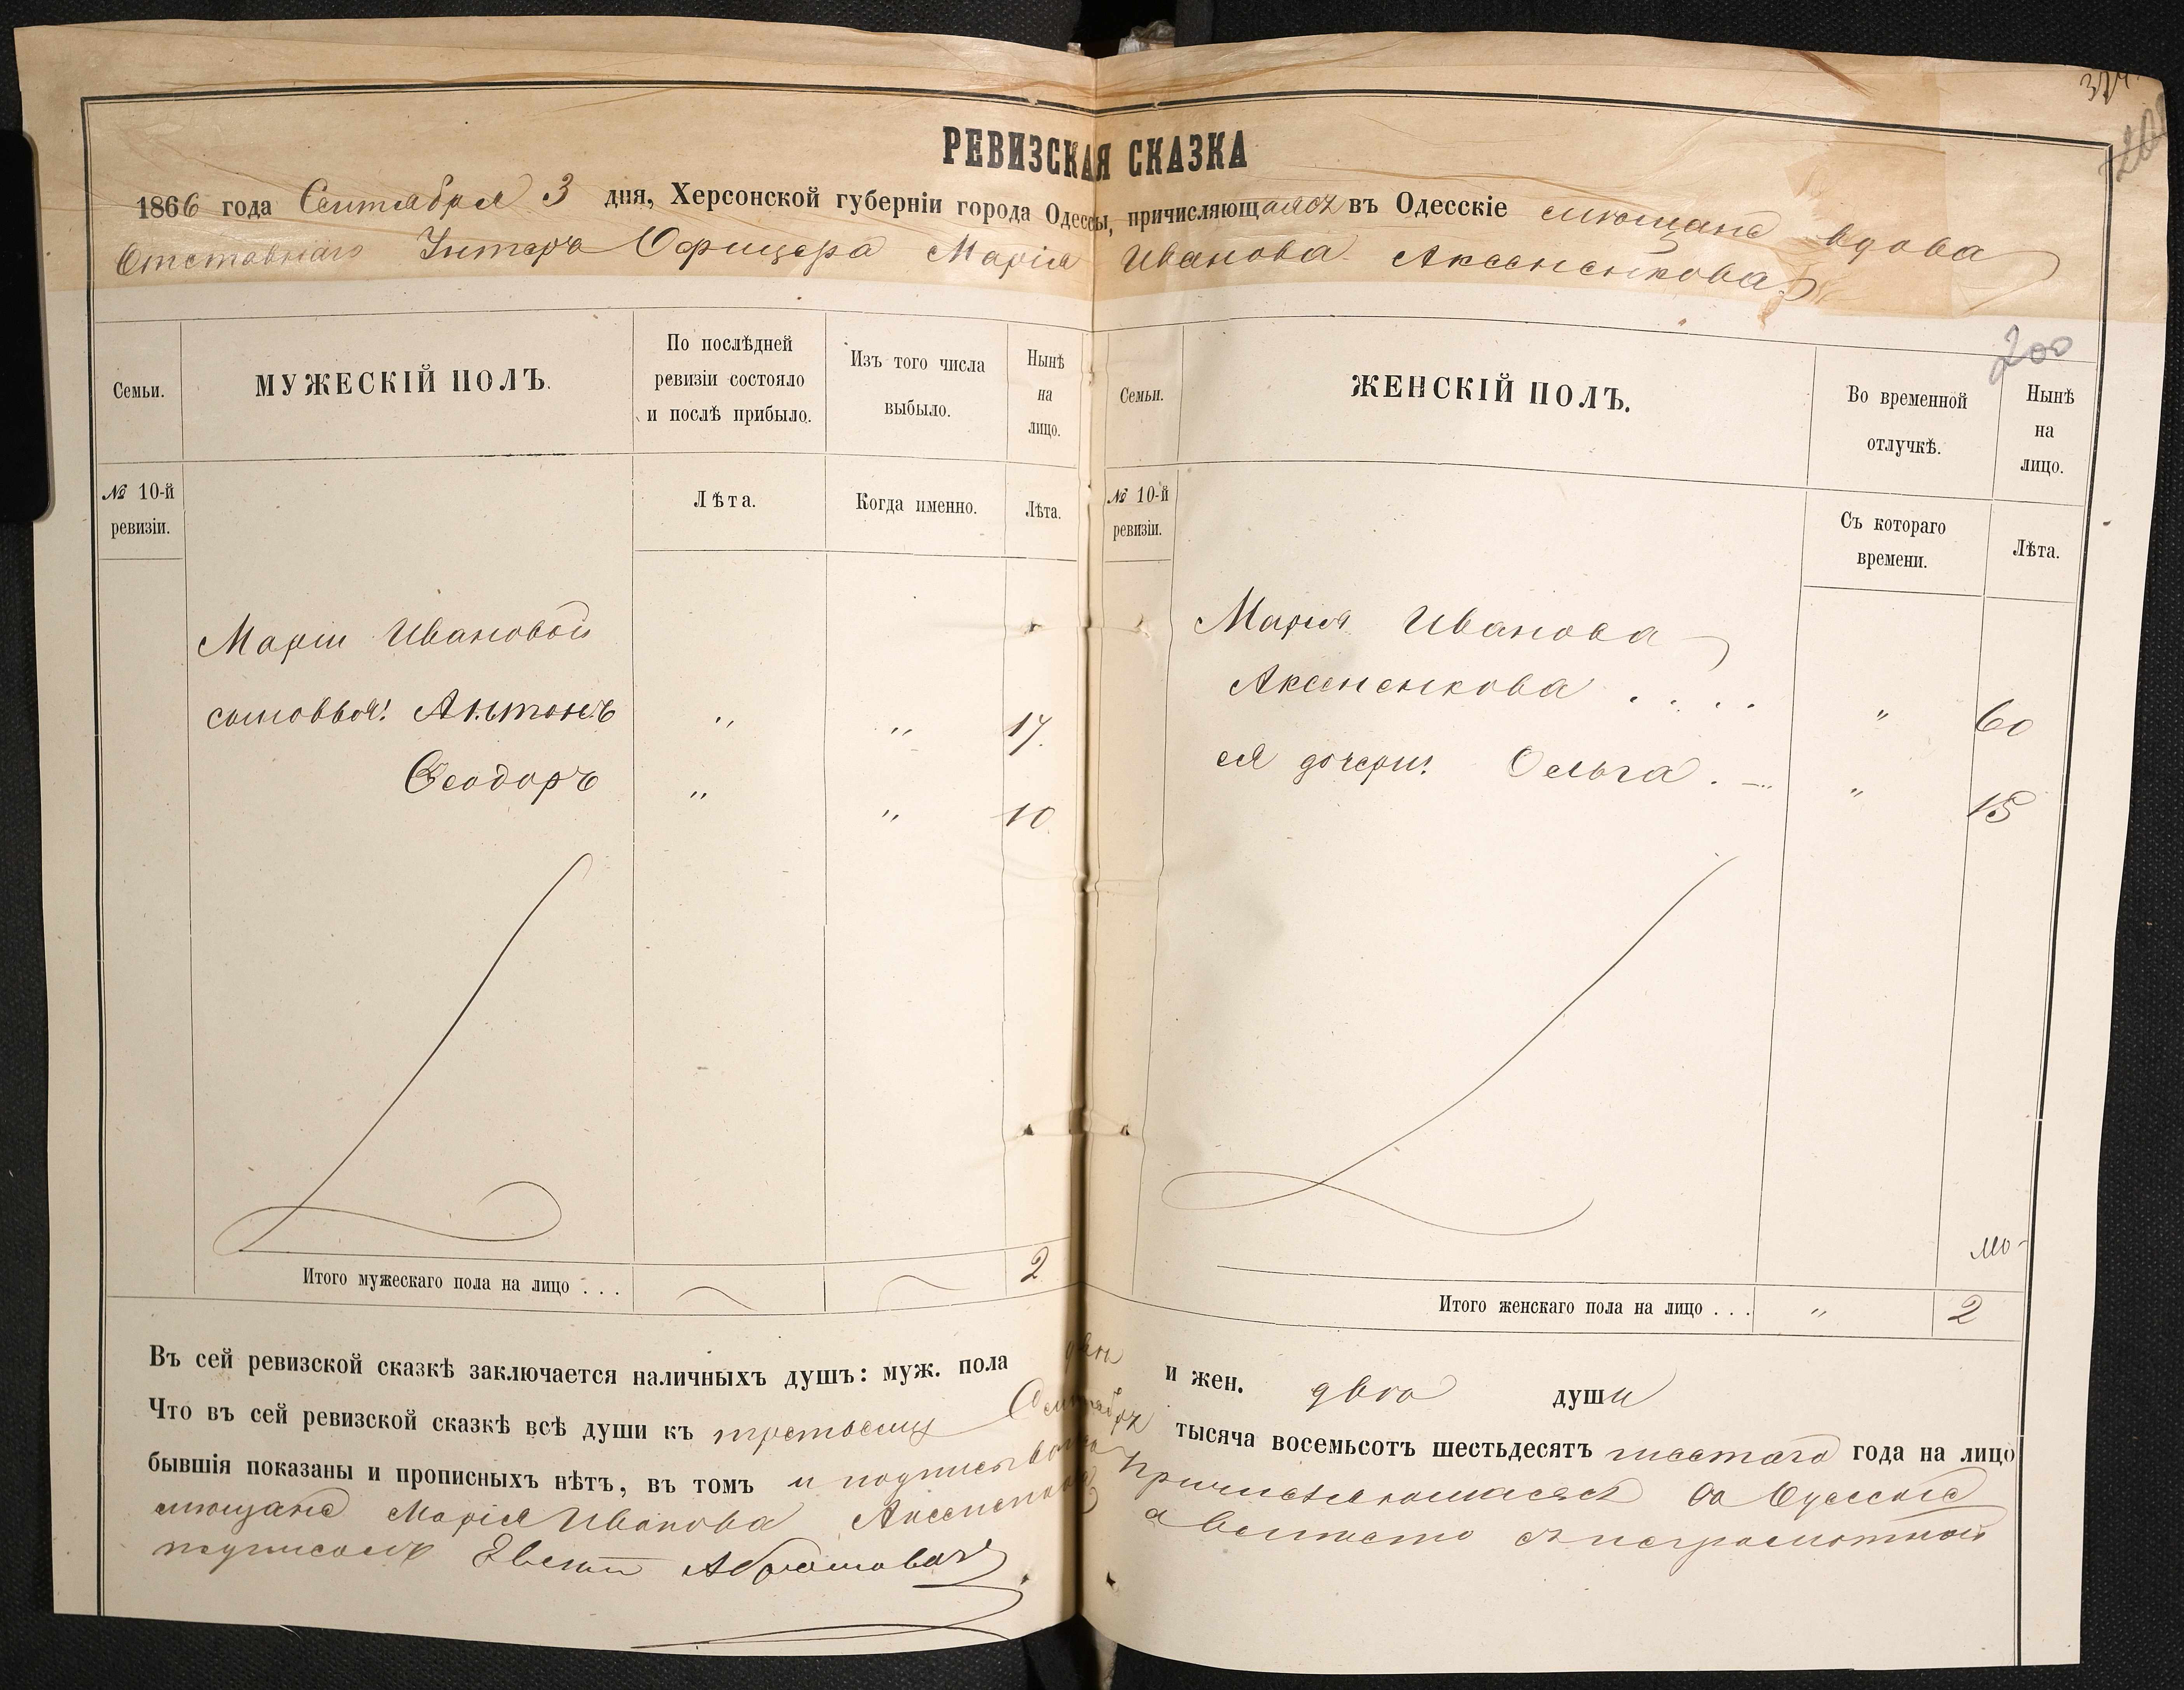 РЕВИЗСКАЯ СКАЗКА
1866 года Сентября 3 дня, Херсонской губерніи города Одессы, причисляющаяся въ Одесскіе мѣщане вдова
Отставнаго Унтеръ Офицера Марія Иванова Аксененкова
200
Семьи.
МУЖЕСКІЙ ПОЛЪ.
По послѣдней ревизіи состояло и послѣ прибыло.
Изъ того числа выбыло.
Нынѣ на лицо.
№ 10-й ревизіи.
Лѣта.
Когда именно.
Лѣта.
Маріи Ивановой
сыновья: Антонъ " " 17.
Ѳеодоръ " " 10
Итого мужескаго пола на лицо . . . 2
Семьи.
ЖЕНСКІЙ ПОЛЪ.
Во временной отлучкѣ.
Нынѣ на лицо.
№ 10-й ревизіи.
Съ котораго времени.
Лѣта.
Марія Иванова
Аксененкова . . . . " 60
ея дочери: Ольга . — " 15
Итого женскаго пола на лицо . . . " 2
Въ сей ревизской сказкѣ заключается наличныхъ душъ: муж. пола двѣ и жен. двѣ души
Что въ сей ревизской сказкѣ всѣ души къ третьему Сентября тысяча восемьсотъ шестьдесятъ шестаго года на лицо
бывшія показаны и прописныхъ нѣтъ, въ томъ и подписываюсь Причисляющаяся въ Одесскіе
мѣщане Марія Иванова Аксененкова а вмѣсто ея неграмотной
подписалъ Абрамовичъ